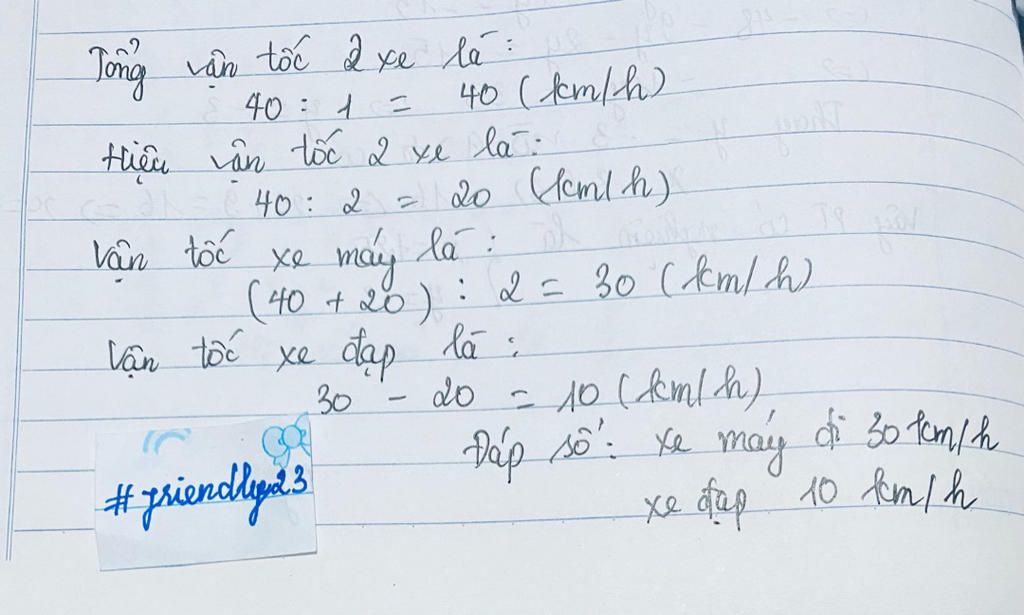 Tổng vận tốc 2 xe là:
40 : 1 = 40 (km/h)
Hiệu vận tốc 2 xe là:
40 : 2 = 20 (km/h)
Vận tốc xe máy là:
(40 + 20) : 2 = 30 (km/h)
Vận tốc xe đạp là:
30 - 20 = 10 (km/h)
Đáp số: xe máy đi 30 km/h
xe đạp 10 km/h
#friendly23